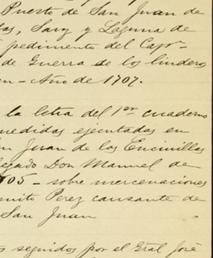 Puesto de San Juan de
Sauz y Laguna de
pedimento del Cap
de Guerra de los lindero
Año de 1707.
la letra del 1er cuaderno
medidas ejecutadas en
n Juan de los Encinillas
Don Manuel de
705 – sobre mercenaciones
Perez causante de
San Juan
seguidos por el Gral José